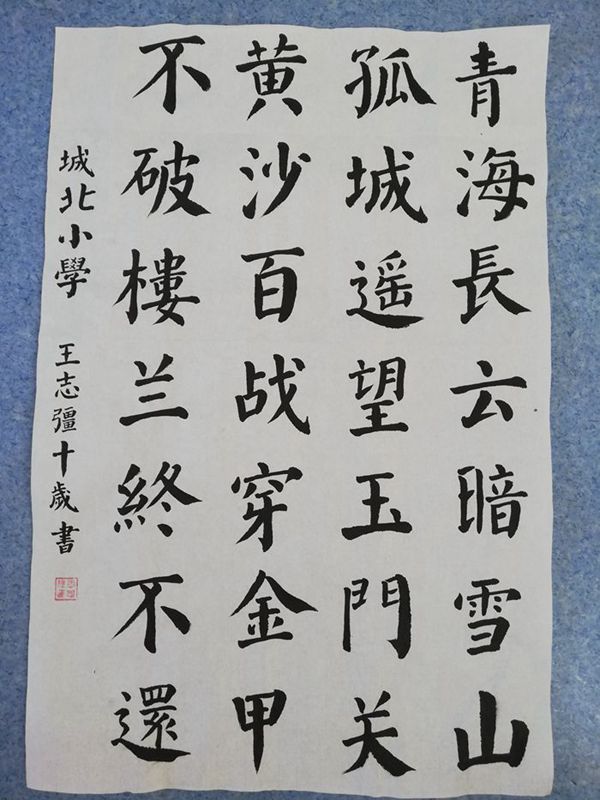 青海長云暗雪山
孤城遥望玉門关
黄沙百战穿金甲
不破樓兰終不還
城北小學 王志彊十歲書